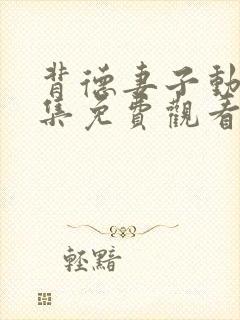 背德妻子動
集免費觀看
輕黯